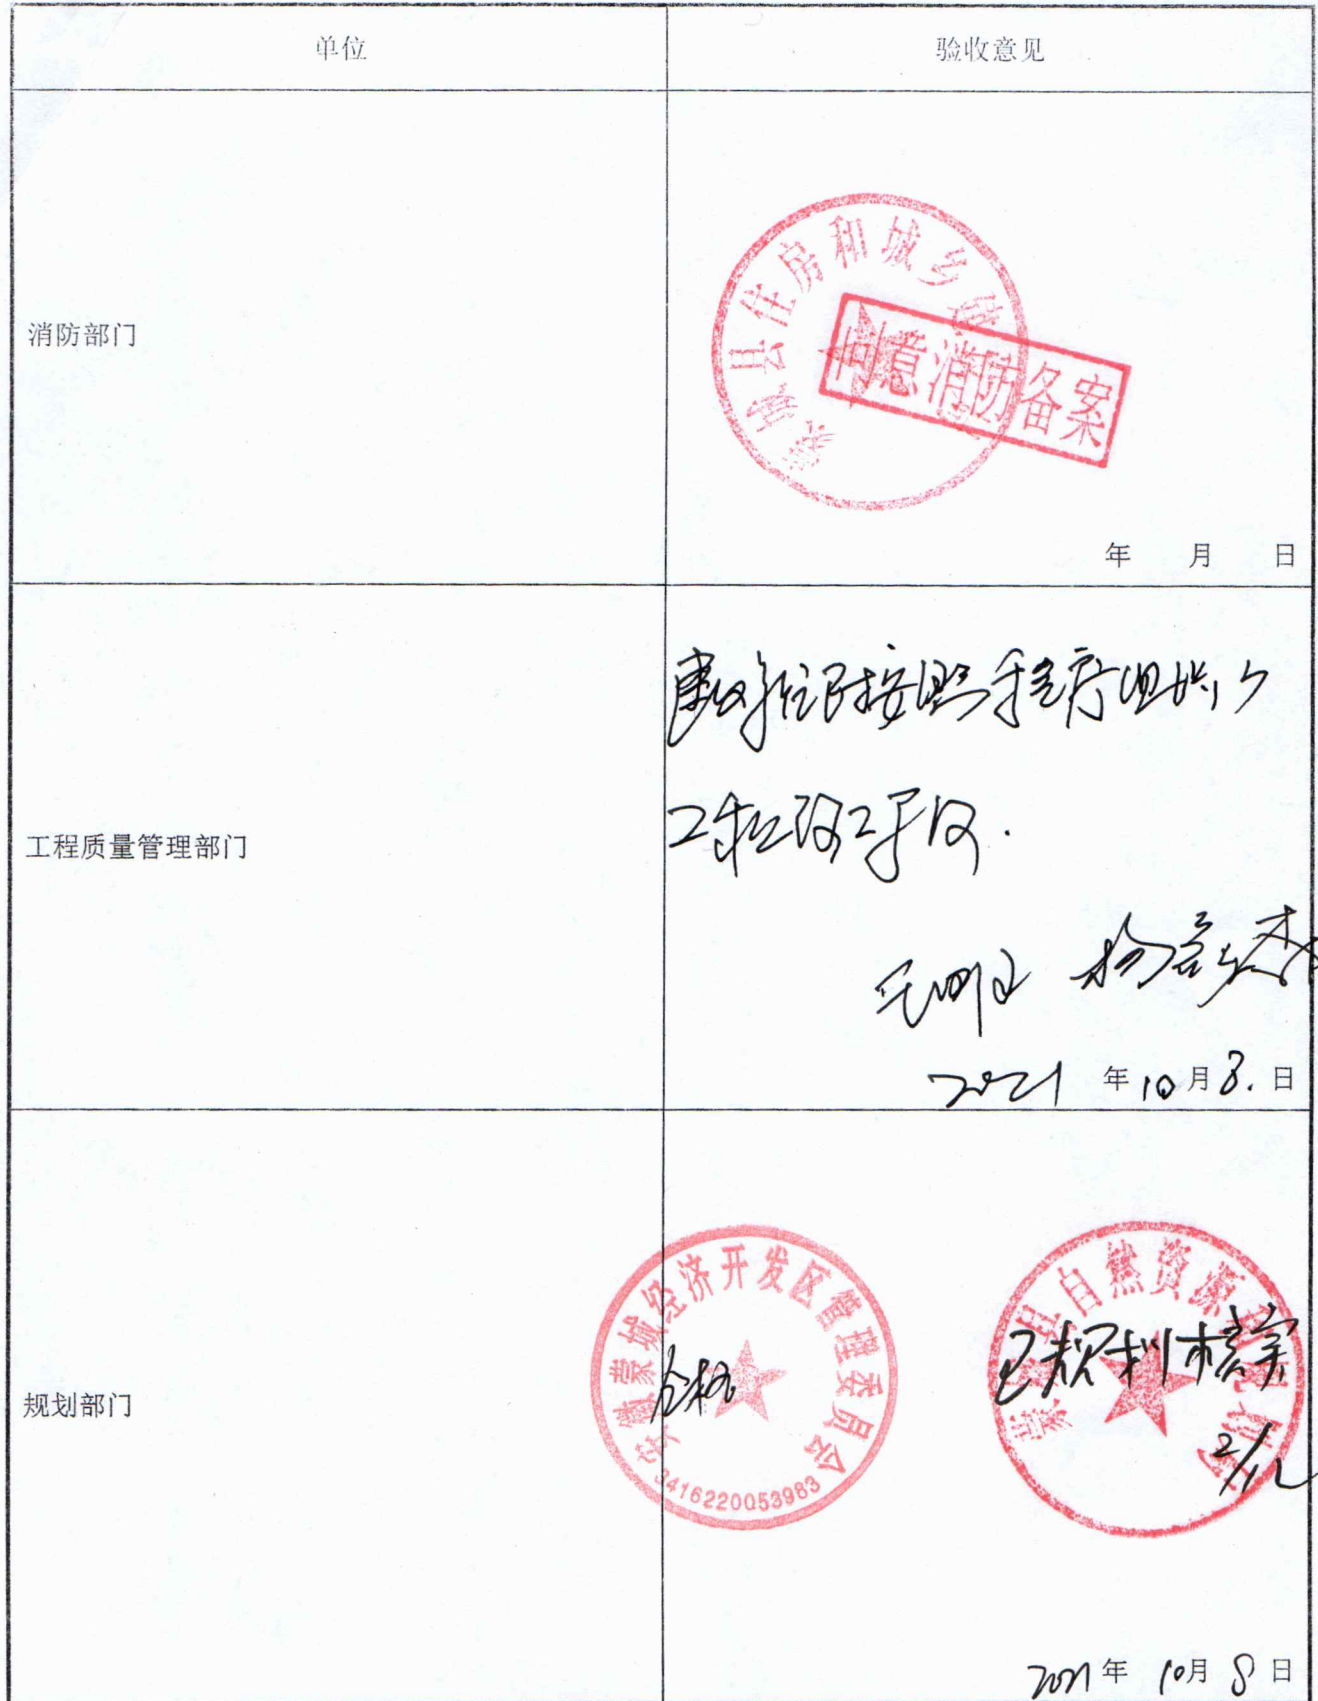 单位 验收意见
消防部门
蒙城县住房和城乡建
同意消防备案
年 月 日
工程质量管理部门
建设单位已按照程序组织了
工程竣工验收.
2021 年 10 月 8. 日
规划部门
安徽蒙城经济开发区管理委员会
合格
3416220053983
蒙城县自然资源和规划局
已规划核实
2021 年 10 月 8 日